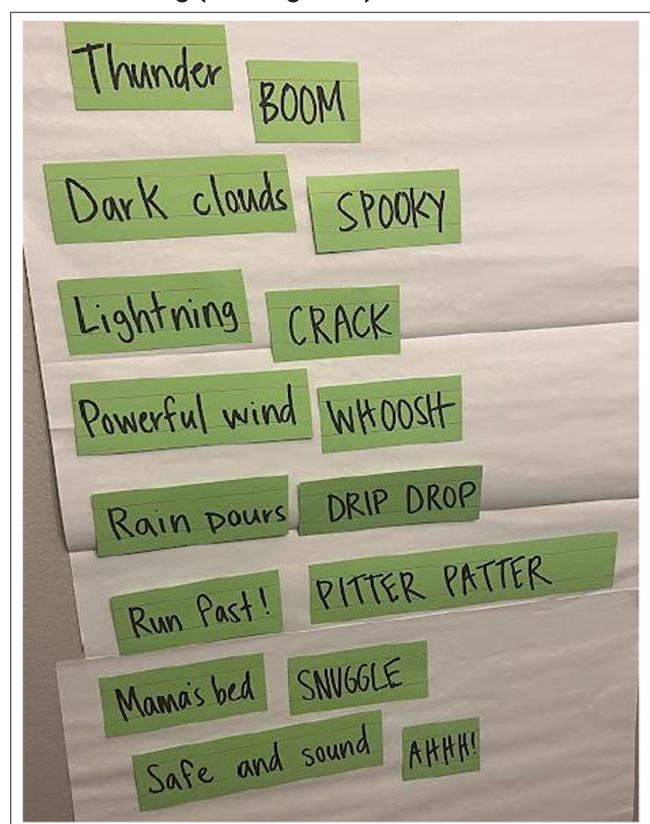 Thunder BOOM
Dark clouds SPOOKY
Lightning CRACK
Powerful wind WHOOSH
Rain pours DRIP DROP
Run fast! PITTER PATTER
Mama's bed SNUGGLE
Safe and sound AHHH!